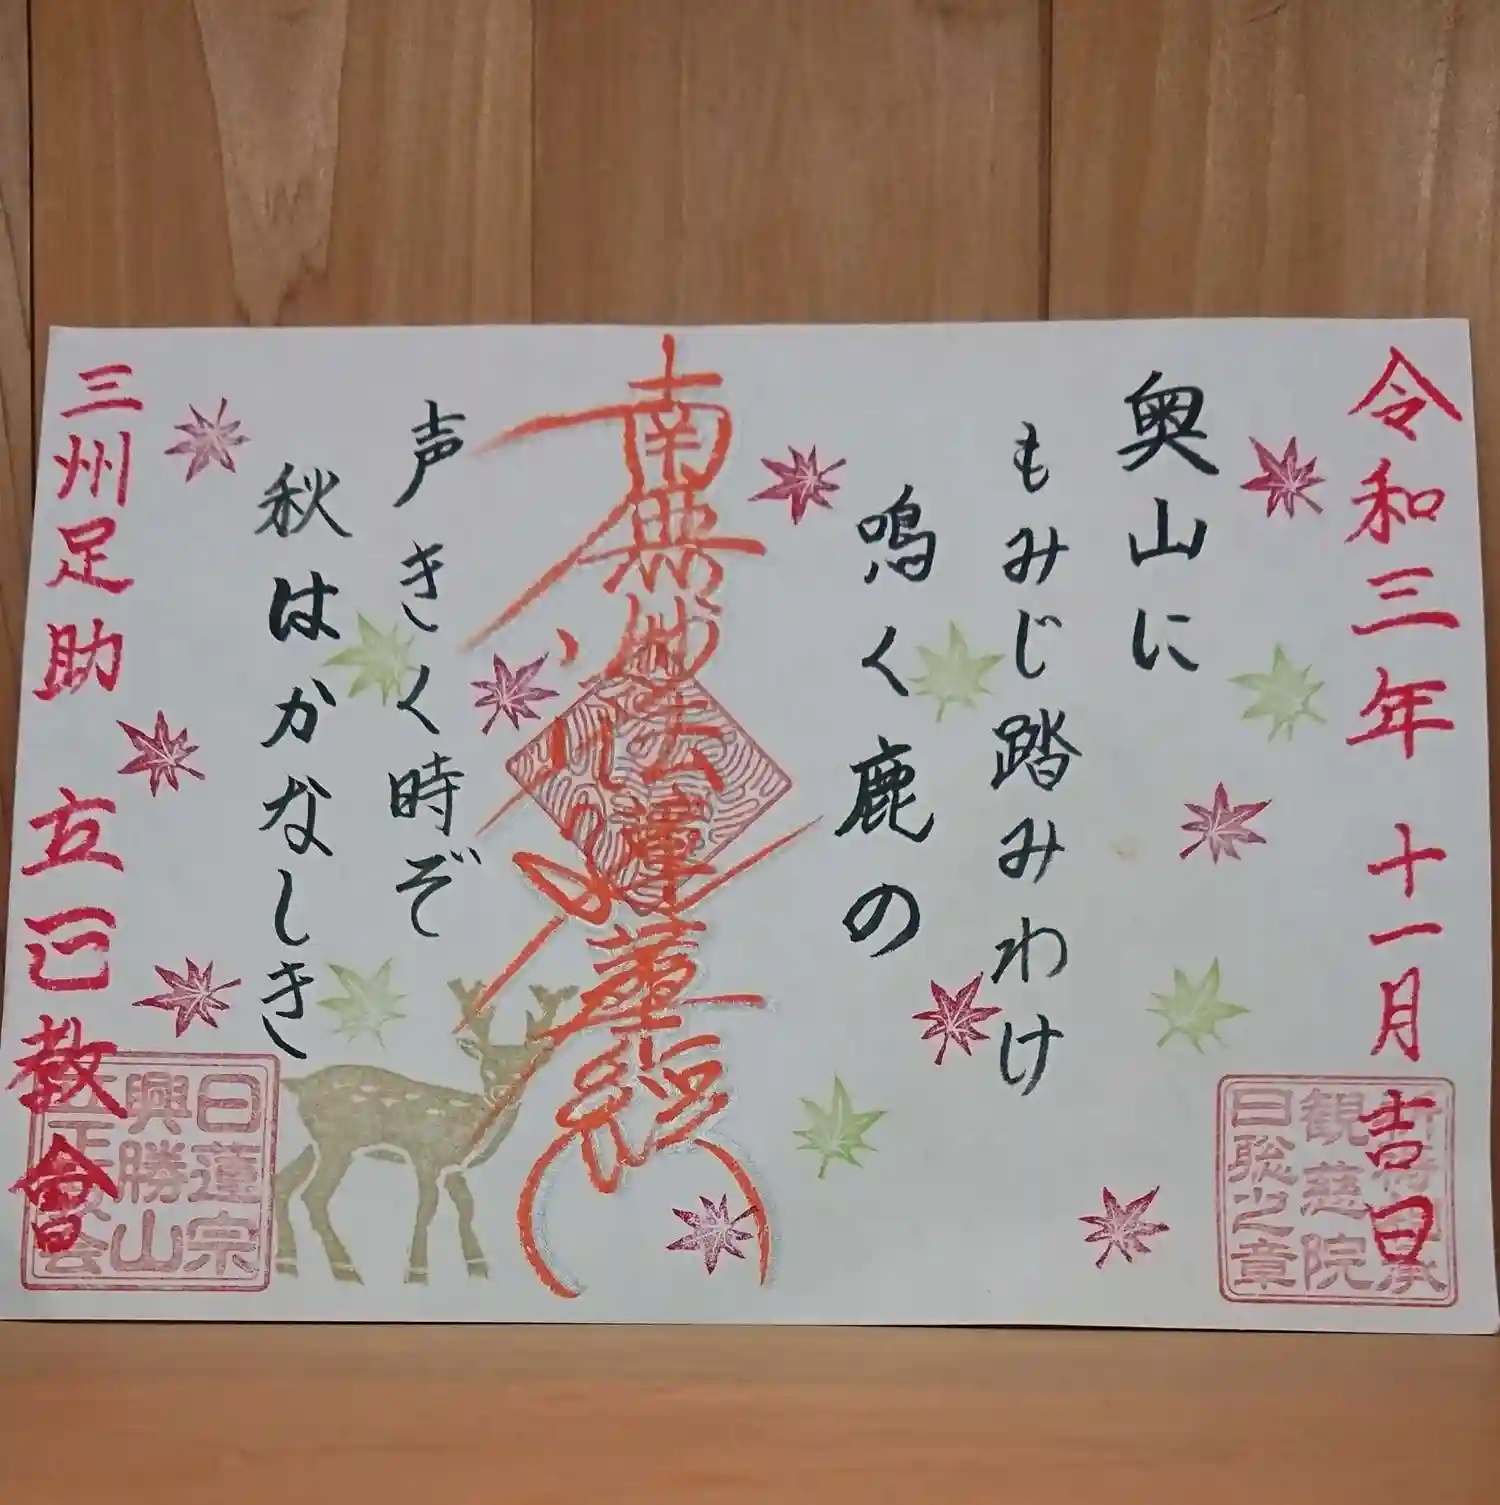 令和三年 十一月吉日
奥山に
もみじ踏みわけ
鳴く鹿の
南無妙法蓮華経
声きく時ぞ
秋はかなしき
三州足助 立正教會
観慈院
日聡之章
日蓮宗
興勝山
立正教会